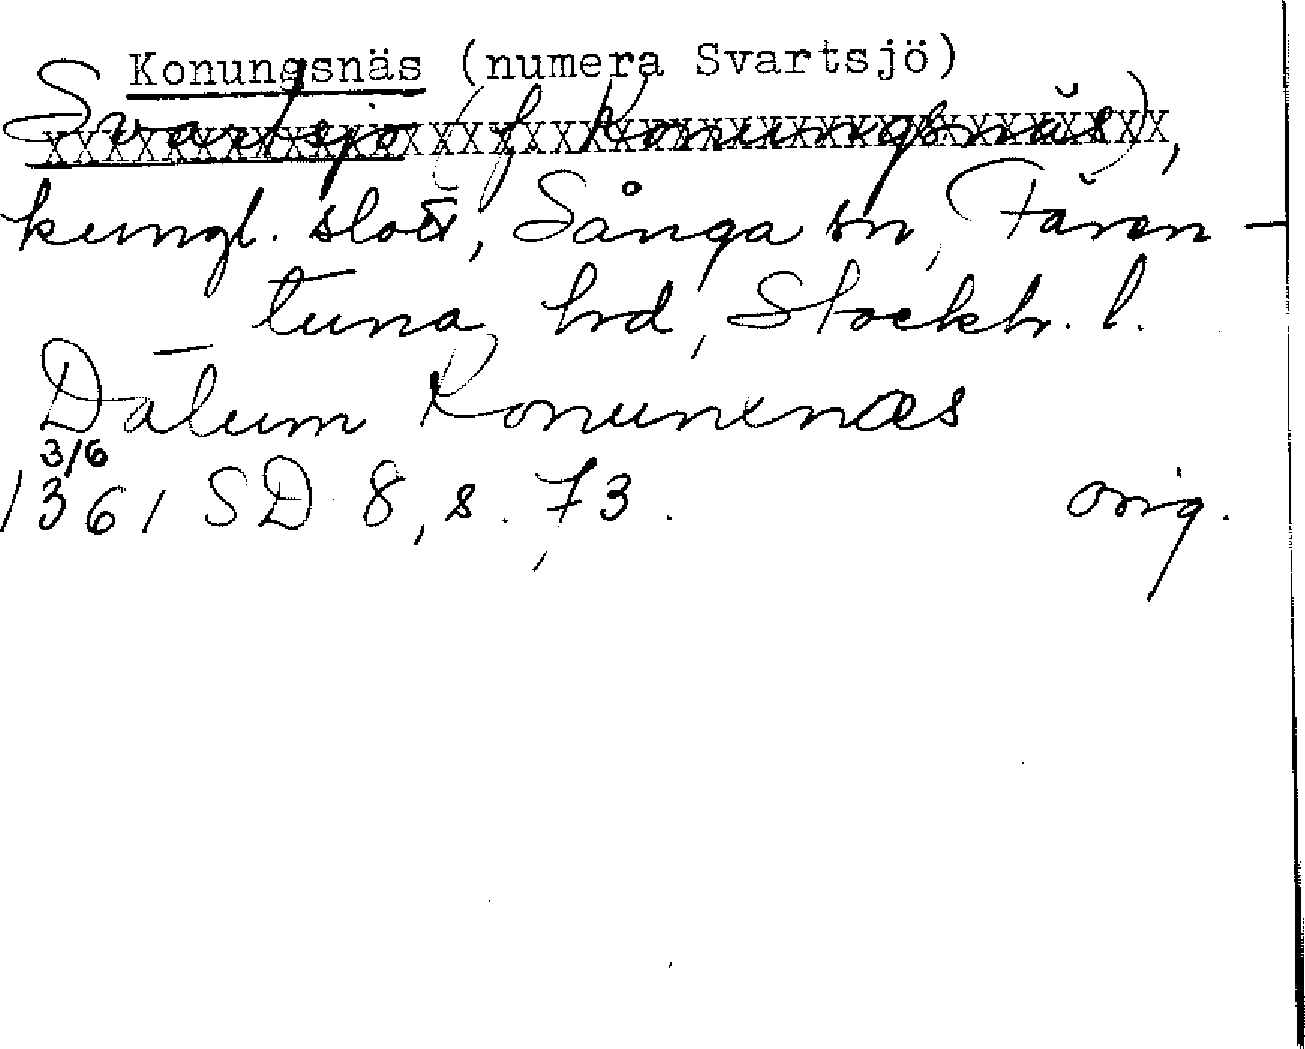 Konungsnäs (numera Svartsjö)
Svartsjö (f. Konungsnäs),
kungl. slott, Sånga sn, Fären-
tuna hd, Stockh. l.
Datum Konunxnæs
3/6
1361 SD 8, s. 73. orig.